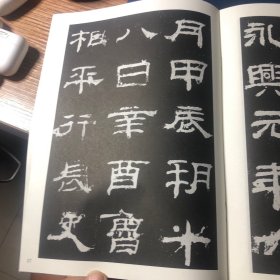 永興元年六
月甲辰朔十
八日辛酉魯
相平行長史